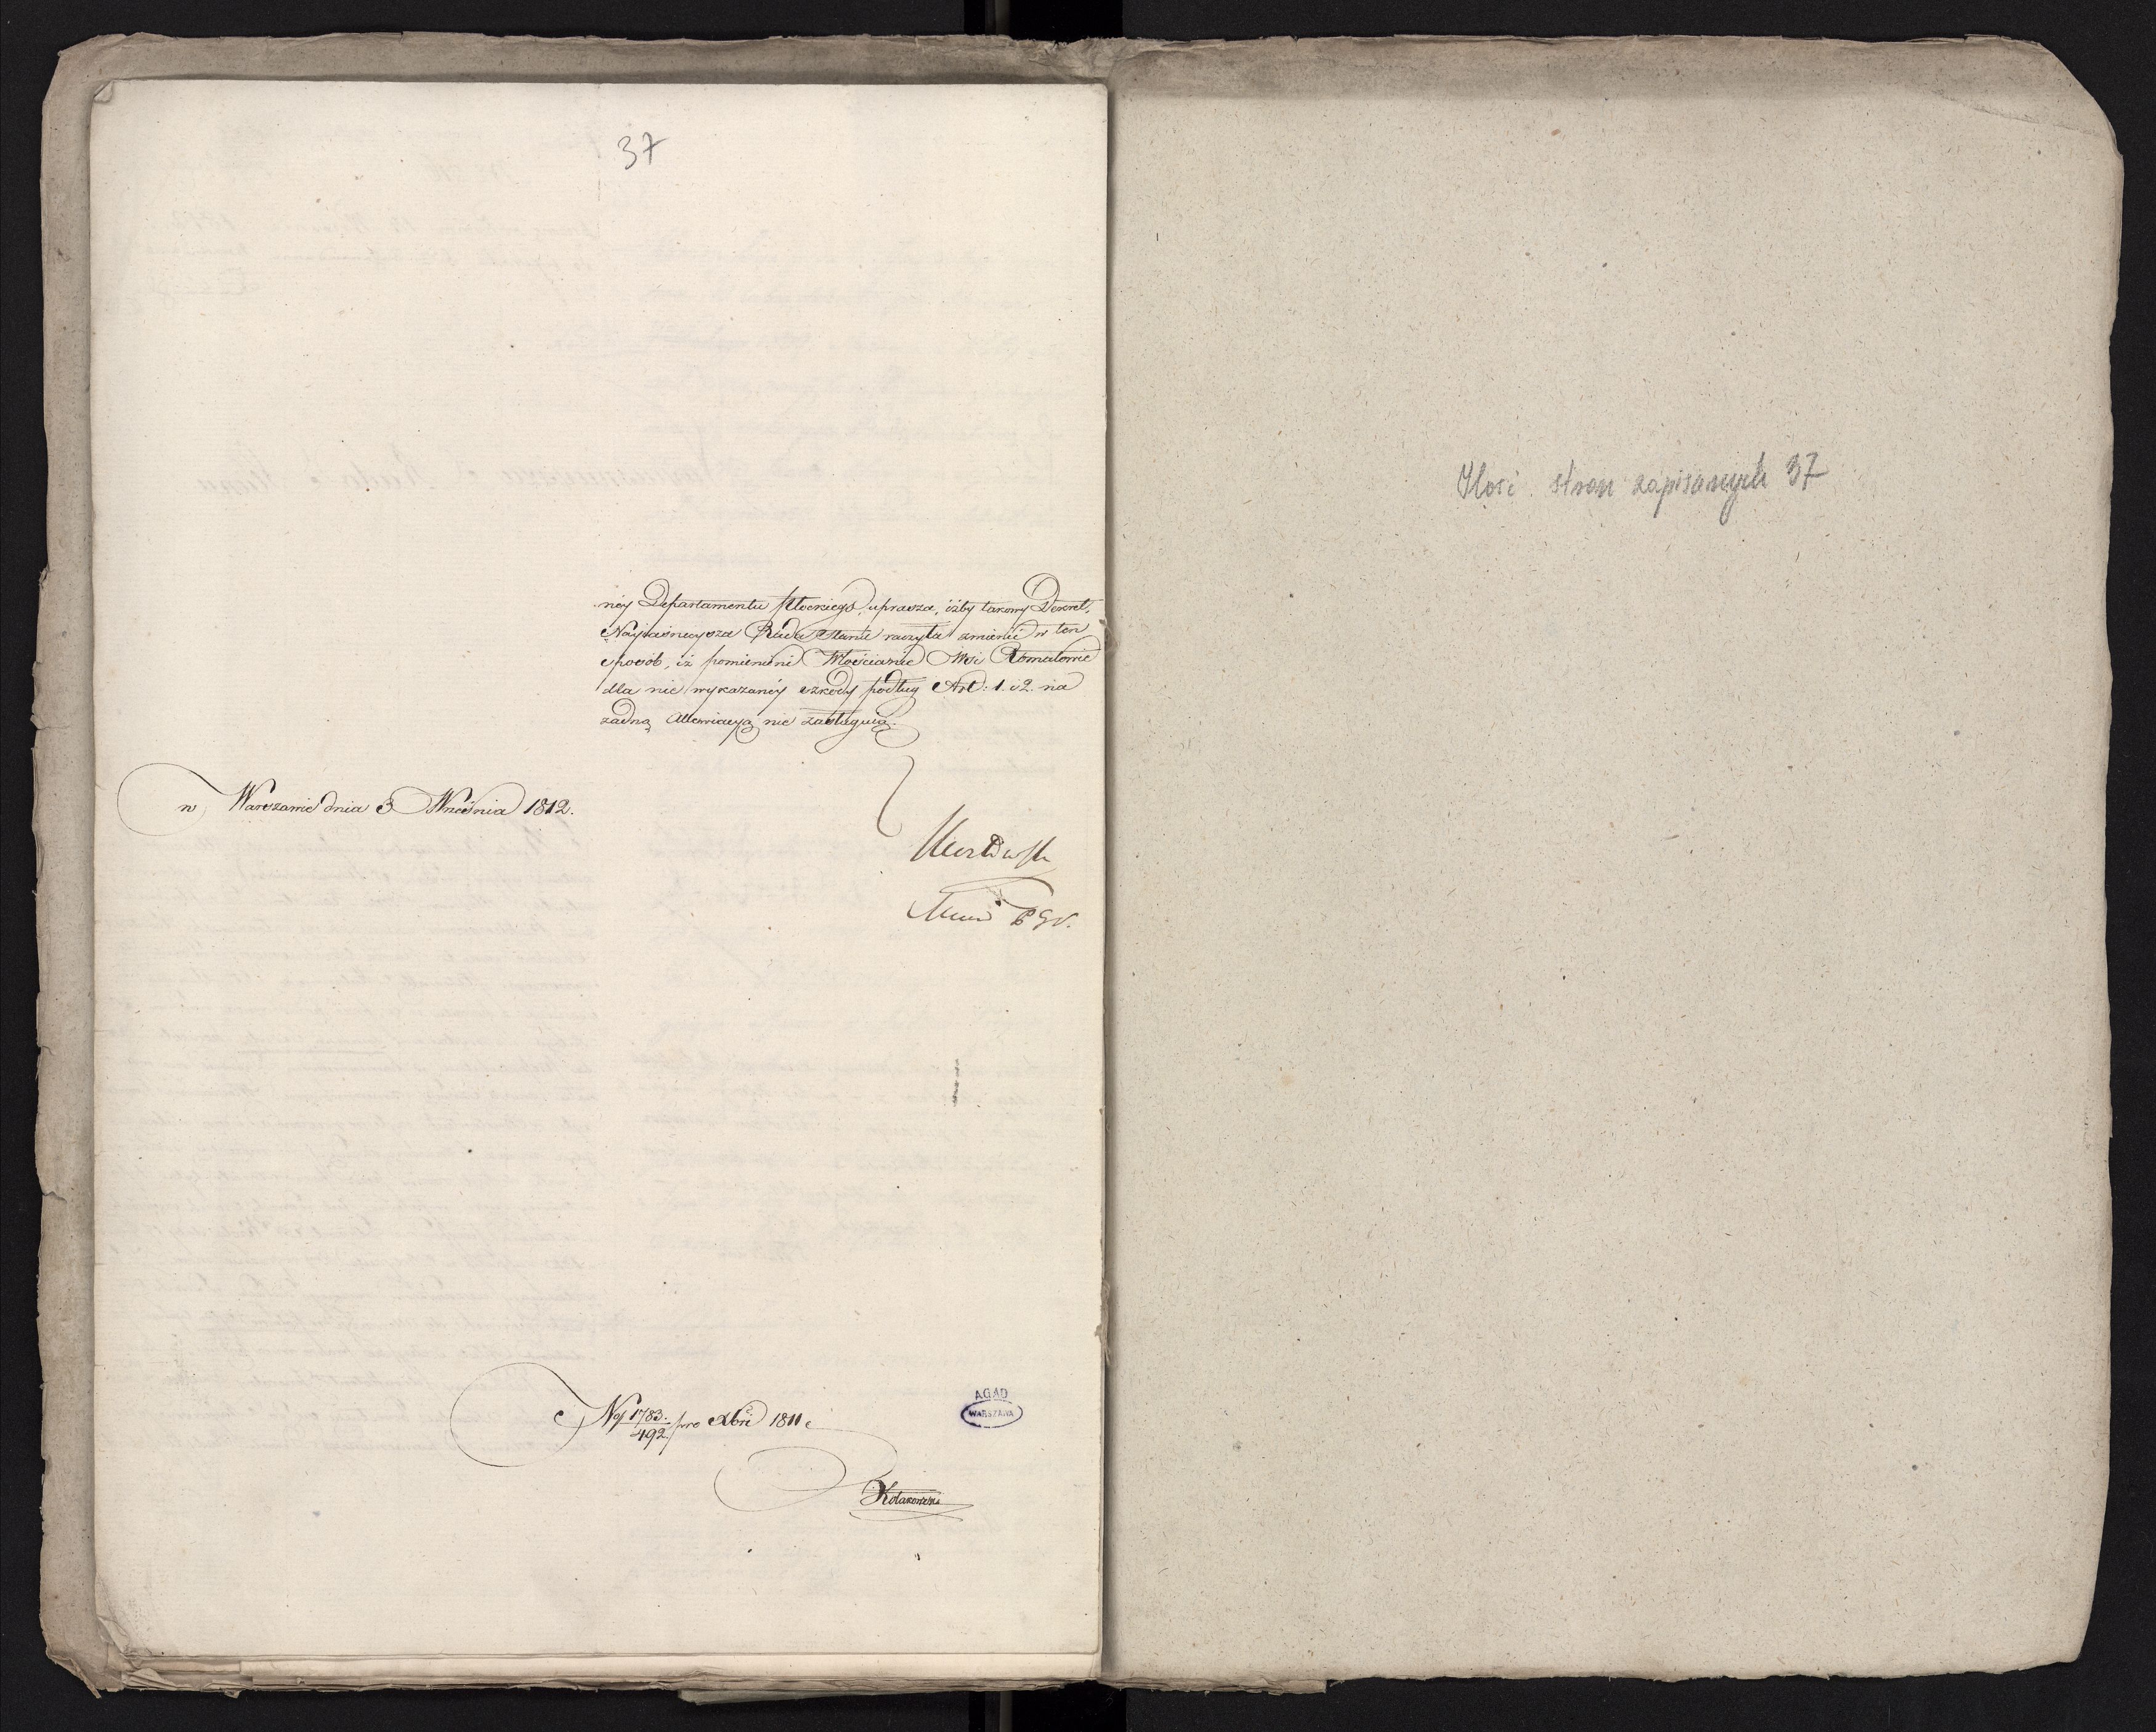 37
néy Departamentu Płockiego, uprasza, iżby takowy Dekret,
Nayiaśnieysza Rada Stanu raczyła zmienić w ten
sposób, iż pomienieni Włościanie Wsi Romatowie
dla nie wykazanéy szkody podług Art: 1. i 2. na
żadną Allewiacyą nie zasługuią.
w Warszawie dnia 3 Września 1812.
PGR.
N<sup>o</sup> 1783./492. pro Xbri 1811
Kołakowski
AGAD
WARSZAWA
Ilość stron zapisanych 37